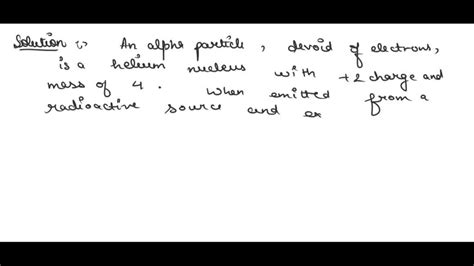 Solution :, An alpha particle, devoid of electrons,
is a helium nucleus with +2 charge and
mass of 4. When emitted from a
radioactive source and ex